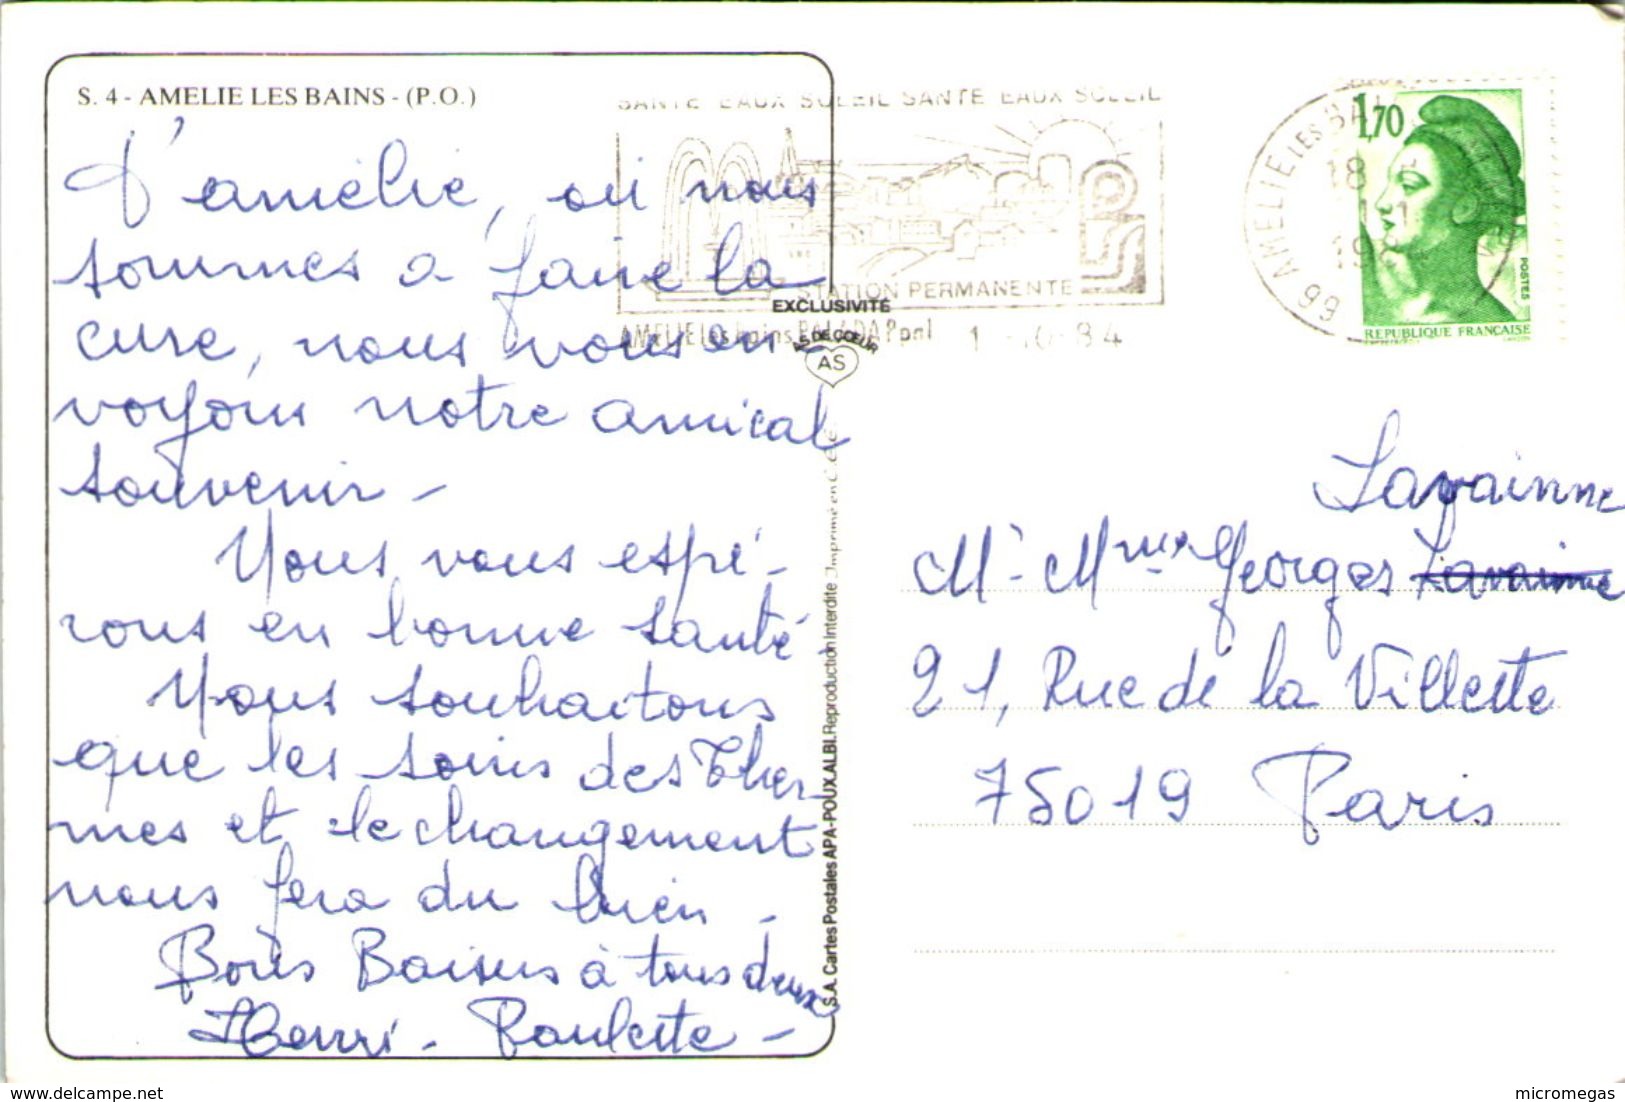 S. 4 - AMELIE LES BAINS - (P.O.)
D'amélie, où nous
sommes à faire la
cure, nous vous en-
voyons notre amical
souvenir -
Nous vous espé-
rons en bonne santé -
Nous souhaitons
que les soins des Ther-
mes et le changement
nous fera du bien -
Bons Baisers à tous deux
Henri - Paulette -
SANTE EAUX SOLEIL SANTE EAUX SOLEIL
STATION PERMANENTE
AMELIE les bains PALALDA P.onl
EXCLUSIVITÉ
AS DE CŒUR
AS
S.A. Cartes Postales APA-POUX, ALBI. Reproduction interdite Imprimé en C.E.E.
66 AMELIE LES BAINS
18
1,70
POSTES
REPUBLIQUE FRANÇAISE
Lavainne
Mr Mme Georges Lavainne
21, Rue de la Villette
75019 Paris
www.delcampe.net
micromegas